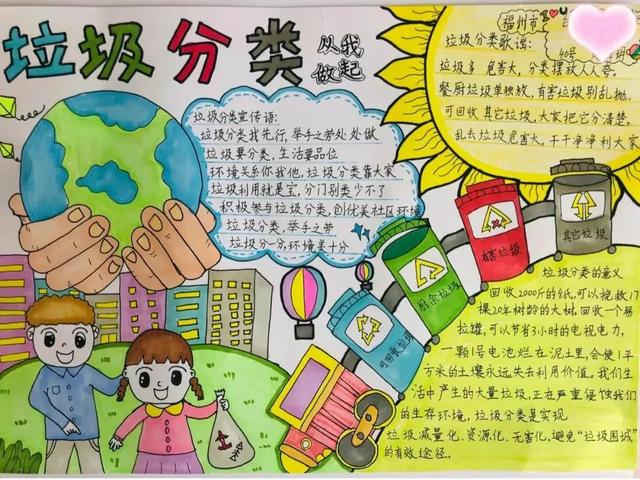 垃圾分类
从我
做起
福州市
40号
垃圾分类歌谣:
垃圾多危害大,分类摆放人人夸。
餐厨垃圾单独放,有害垃圾别乱抛。
可回收其它垃圾,大家把它分清楚。
乱丢垃圾危害大,干干净净利大家
垃圾分类宣传语:
垃圾分类我先行,举手之劳处处做
垃圾要分类,生活要品位
环境关系你我他,垃圾分类靠大家
垃圾利用就是宝,分门别类少不了
积极参与垃圾分类,创优美社区环境
垃圾分类,举手之劳
垃圾分一分,环境美十分
可回收垃圾
厨余垃圾
有害垃圾
其它垃圾
垃圾分类的意义
回收2000斤的纸,可以挽救17
棵20年树龄的大树。回收一个易
拉罐,可以节省3小时的电视电力。
一颗1号电池烂在泥土里,会使1平
方米的土壤永远失去利用价值,我们生
活中产生的大量垃圾,正在严重侵蚀我们
的生存环境,垃圾分类是实现
垃圾减量化、资源化、无害化,避免“垃圾围城”
的有效途径。